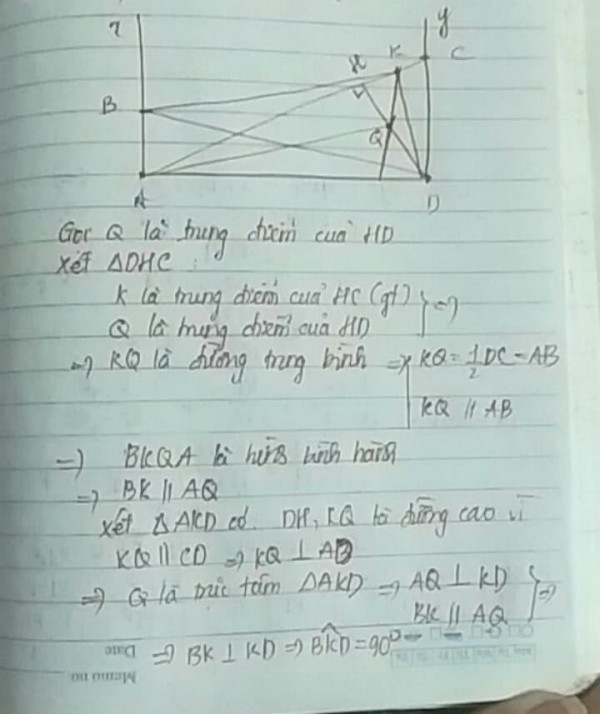 x y
H K C
B
Q
A D
Gọi Q là trung điểm của HD
Xét ΔDHC
K là trung điểm của HC (gt) } =>
Q là trung điểm của HD
=> KQ là đường trung bình => KQ = 1/2 DC = AB
KQ // AB
=> BKQA là hình bình hành
=> BK // AQ
Xét ΔAKD có DH, KQ là đường cao vì
KQ // CD => KQ ⊥ AD
=> Q là trực tâm ΔAKD => AQ ⊥ KD } =>
BK // AQ
=> BK ⊥ KD => BKD = 90°
Date
Memo no.